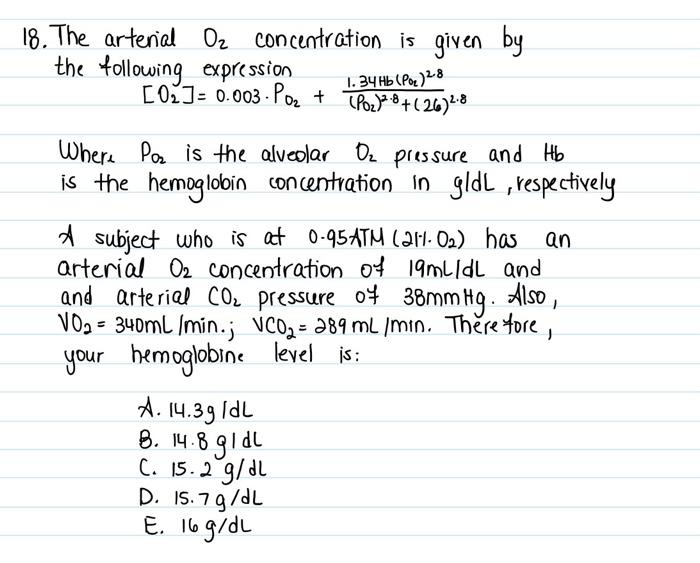 18. The arterial O₂ concentration is given by
the following expression
[O₂] = 0.003 · P_O₂ + 1.34 Hb (P_O₂)^2.8 / (P_O₂)^2.8 + (26)^2.8
Where P_O₂ is the alveolar O₂ pressure and Hb
is the hemoglobin concentration in g/dL, respectively
A subject who is at 0.95 ATM (21% O₂) has an
arterial O₂ concentration of 19mL/dL and
and arterial CO₂ pressure of 38mmHg. Also,
VO₂ = 340mL/min.; VCO₂ = 289 mL/min. Therefore,
your hemoglobine level is:
A. 14.3g/dL
B. 14.8 g/dL
C. 15.2 g/dL
D. 15.7g/dL
E. 16 g/dL